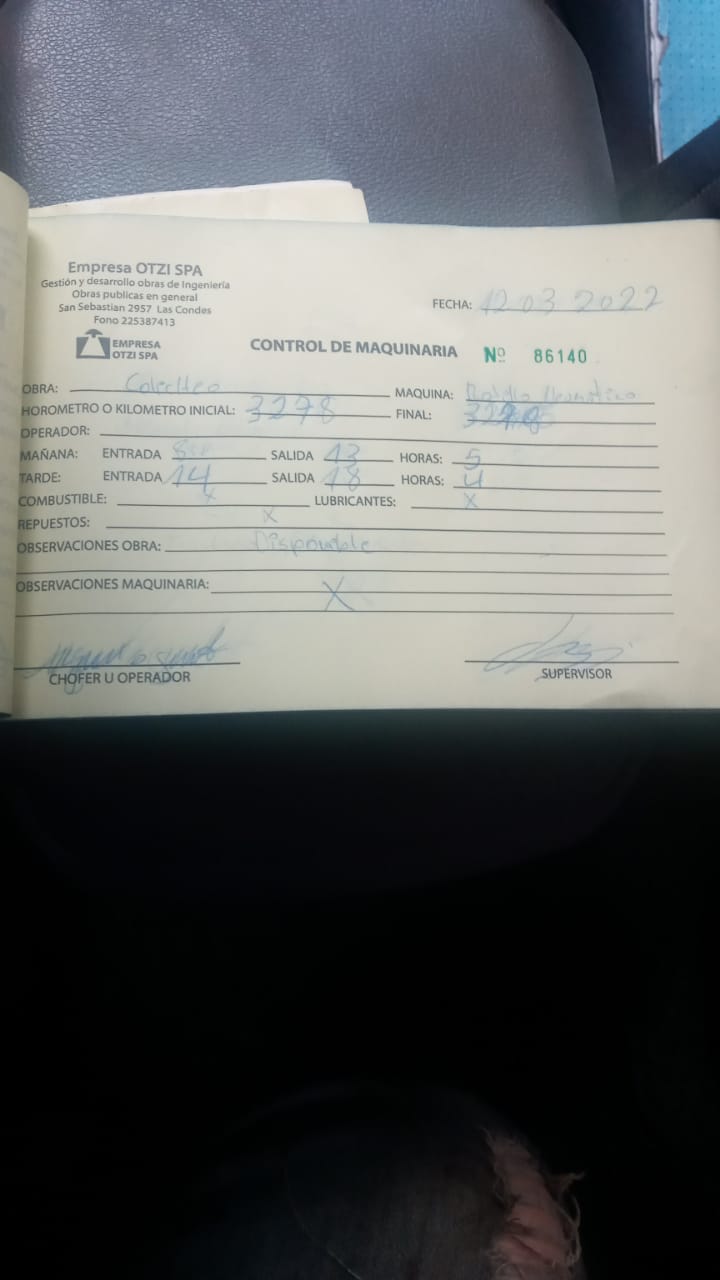 Empresa OTZI SPA
Gestión y desarrollo obras de Ingeniería
Obras publicas en general
San Sebastian 2957 Las Condes
Fono 225387413
EMPRESA
OTZI SPA
FECHA: 12 03 2022
CONTROL DE MAQUINARIA Nº 86140
OBRA: MAQUINA:
HOROMETRO O KILOMETRO INICIAL: 3278 FINAL:
OPERADOR:
MAÑANA: ENTRADA 8 SALIDA 13 HORAS: 5
TARDE: ENTRADA 14 SALIDA 18 HORAS: 4
COMBUSTIBLE: x LUBRICANTES: x
REPUESTOS: x
OBSERVACIONES OBRA: Disponible
OBSERVACIONES MAQUINARIA: X
CHOFER U OPERADOR SUPERVISOR